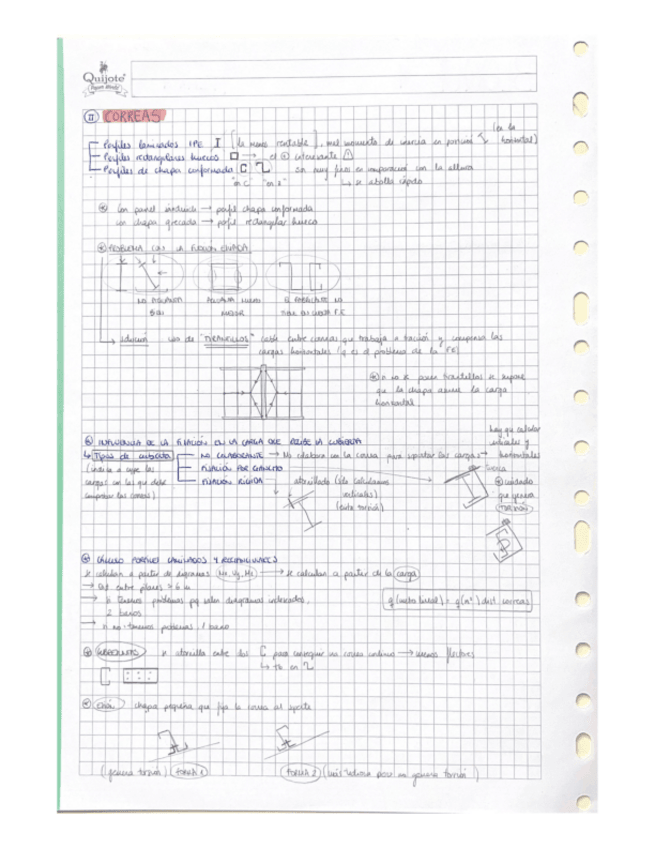 Quijote
II CORREAS
Perfiles laminados IPE I [la menos rentable], mal momento de inercia en (en la horizontal)
Perfiles rectangulares huecos → el interesante
Perfiles de chapa conformada C son muy finos en comparación con la altura
"en C" "en Z" ↳ se abolla rápido
Con panel sandwich → perfil chapa conformada
con chapa grecada → perfil rectangular hueco
PROBLEMA CON LA FLEXIÓN ESVIADA
NO AGUANTA
BIEN
AGUANTA MUCHO
MEJOR
EL FABRICANTE NO
TIENE EN CUENTA F.E
↳ solución uso de "TIRANTILLOS" cable entre correas que trabaja a tracción y compensa las
cargas horizontales (q es el problema de la FE)
si no se ponen tirantillos se supone
que la chapa asume la carga
horizontal
INFLUENCIA DE LA FIJACIÓN EN LA CARGA QUE RECIBE LA CUBIERTA
hay que calcular
verticales y
horizontales
↳ Tipos de cubierta NO COLABORANTE → No colabora con la correa para soportar las cargas
(indica a coger las
cargas con las que debe
comprobar las correas)
FIJACIÓN POR GANCHO
FIJACIÓN RÍGIDA → atornillado (sólo calculamos
verticales)
(evita torsión)
cuidado
que genera
TORSIÓN
CÁLCULO PERFILES LAMINADOS Y RECTANGULARES
se calculan a partir de diagramas → se calculan a partir de la carga
si tenemos problemas pq salen diagramas
2 vanos
si no tenemos problemas, 1 vano
q (metro lineal) = q(m²) dist correas
se atornilla entre dos C para conseguir una correa continua → menos flectores
↳ tb en
chapa pequeña que fija la correa al soporte
(genera torsión) FORMA 1
FORMA 2 no genera torsión)